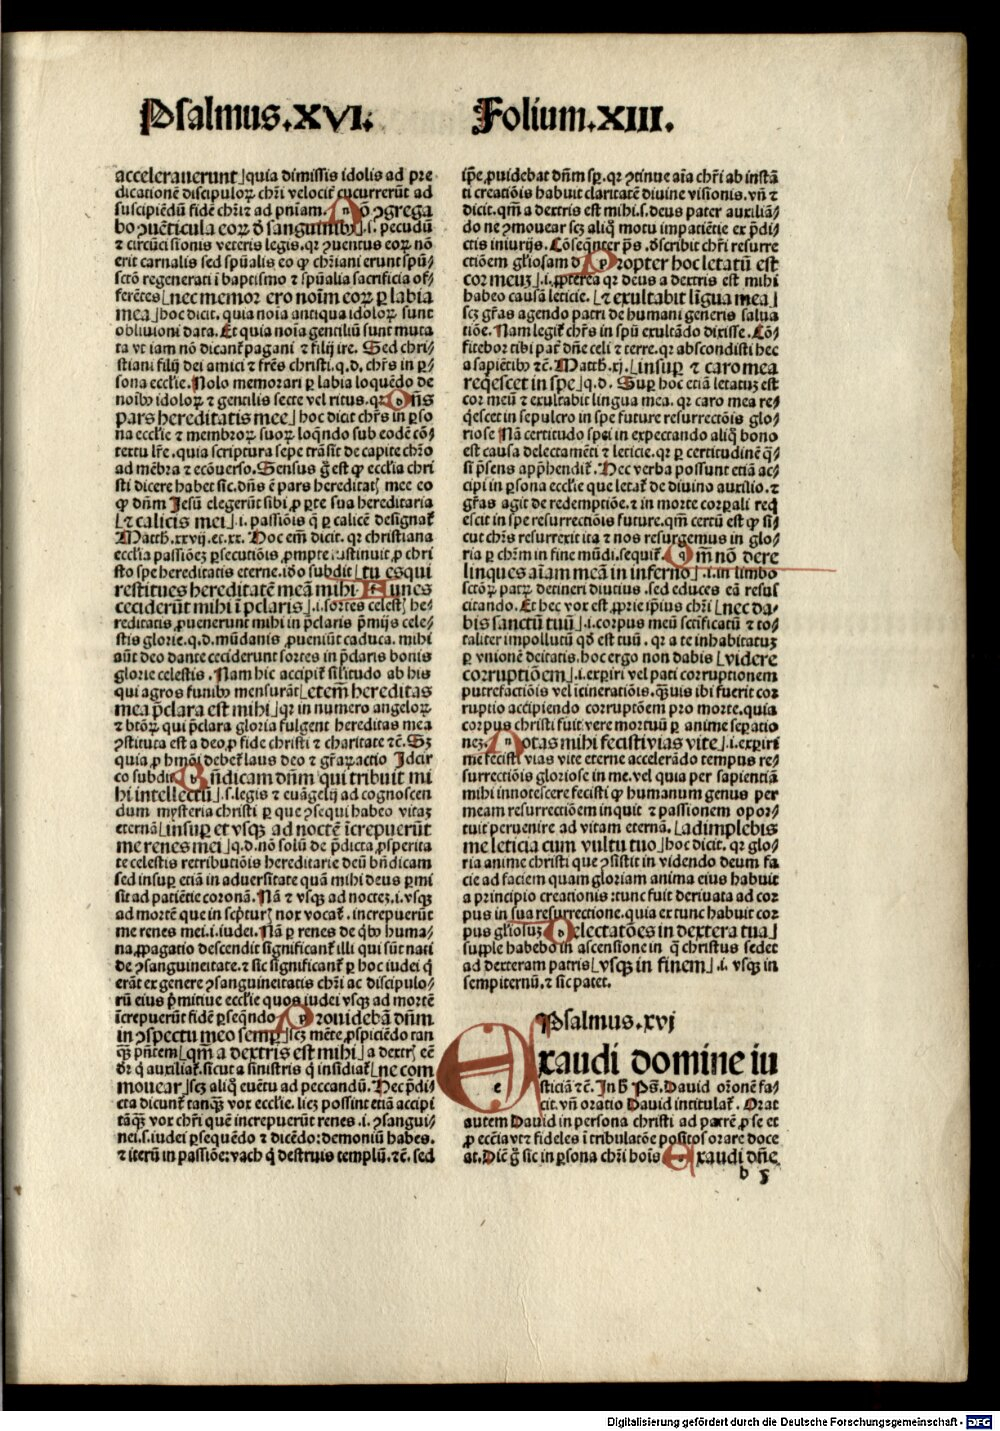 Psalmus.XVI.
Folium.XIII.
accelerauerunt⌋quia dimissis idolis ad pre
dicationē discipuloꝝ chr̄i velocit᷑ cucurrerūt ad
suscipiēdū fidē chr̄i⁊ ad pnīam. Nō ꝯgrega
bo ꝯuēticula eoꝝ d̄ sanguinibꝰ⌋.i. pecudū
⁊ circūcisionis veteris legis. qꝛ ꝯuentus eoꝝ nō
erit carnalis sed spūalis eo ꝙ chr̄iani erunt spūs
sctō regenerati i baptismo ⁊ spūalia sacrificia of⸗
ferētes⌊nec memor ero noīm eoꝝ ꝑ labia
mea⌋hoc dicit. quia noīa antiqua idoloꝝ sunt
obliuioni data. Et quia noīa gentiliū sunt muta
ta vt iam nō dicant᷑ pagani ⁊ filij ire. Sed chri⸗
stiani filij dei amici ⁊ fr̄es christi. q.d. chr̄s in ꝑ⸗
sona eccl̄ie. Nolo memorari ꝑ labia loquēdo de
noībꝰ idoloꝝ ⁊ gentilis secte vel ritus. qꝛ Dn̄s
pars hereditatis mee⌋ hoc dicit chr̄s in ꝑso
na eccl̄ie ⁊ membroꝝ suoꝝ loqn̄do sub eodē cō⸗
textu lr̄e. quia scriptura sepe trāsit de capite chr̄o
ad mēbra ⁊ ecōuerso. Sensus g̊ est ꝙ eccl̄ia chri
sti dicere habet sic. dn̄s ē pars hereditat᷑ mee eo
ꝙ dn̄m Jesū elegerūt sibi ꝓ ꝑte sua hereditaria
⌊⁊ calicis mei⌋.i. passiōis q̄ ꝑ calicē designat᷑
Matth.xxvij.et.xx. Hoc em̄ dicit. qꝛ christiana
eccl̄ia passiōeꝫ ꝑsecutiōis ꝓmpte sustinuit ꝓ chri
sto spe hereditatis eterne. id̄o subdit⌊tu es qui
restitues hereditatē meā mihi. Funes
ceciderūt mihi ī p̄claris⌋.i. sortes celest᷑ he⸗
reditatis ꝓuenerunt mihi in p̄claris p̄mijs cele⸗
stis glorie. q.d. mūdanis ꝓueniūt caduca. mihi
aūt deo dante ceciderunt sortes in p̄claris bonis
glorie celestis. Nam hic accipit᷑ sil̄itudo ab his
qui agros funibꝰ mensurāt⌊etem̄ hereditas
mea p̄clara est mihi⌋qꝛ in numero angeloꝝ
⁊ btōꝝ qui p̄clara gloria fulgent hereditas mea
ꝯstituta est a deo ꝓ fide christi ⁊ charitate ⁊c̄. Sꝫ
quia ꝓ hmōi debet᷑ laus deo ⁊ gr̄aꝝ actio Jdcir
co subdit Bn̄dicam dn̄m qui tribuit mi
hi intellectū⌋.s. legis ⁊ euāgelij ad cognoscen
dum mysteria christi ꝑ que ꝯsequi habeo vitaꝫ
eternā⌊insuꝑ et vsqꝫ ad noctē īcrepuerūt
me renes mei⌋q.d. nō solū de p̄dicta ꝓsperita
te celestis retributiōis hereditarie deū bn̄dicam
sed insuꝑ etiā in aduersitate quā mihi deus ꝑmi
sit ad patiētie coronā. Nā ⁊ vsqꝫ ad nocteꝫ.i. vsqꝫ
ad mortē que in sep̄tur᷑ nox vocat᷑. increpuerūt
me renes mei.i. iudei. Nā ꝑ renes de qͥbꝰ huma⸗
na ꝓpagatio descendit significant᷑ illi qui sūt nati
de ꝯsanguineitate. ⁊ sic significant᷑ ꝑ hoc iudei q̄
erāt ex genere ꝯsanguineitatis chr̄i ac discipulo⸗
rū eius p̄mitiue eccl̄ie quos iudei vsqꝫ ad mortē
īcrepuerūt fidē ꝑseqn̄do Prouidebā dn̄m
in ꝯspectu meo semꝑ⌋scꝫ mēte ꝓspiciēdo tan
qͣꝫ pn̄tem⌊qm̄ a dextris est mihi⌋a dextr᷑ eē
dr̄ q̄ auxiliat᷑. sicut a sinistris q̄ insidiat᷑⌊ne com
mouear⌋scꝫ aliq̄ euētu ad peccandū. Hec p̄di⸗
cta dicunt᷑ tanqͣꝫ vox eccl̄ie. licꝫ possint etiā accipi
tāqͣꝫ vox chr̄i quē increpuerūt renes.i. ꝯsangui⸗
nei.s. iudei ꝑsequēdo ⁊ dicēdo: demoniū habes.
⁊ iterū in passiōe: vach q̄ destruis templū. ⁊c̄. sed
ip̄e ꝓuidebat dn̄m sꝑ. qꝛ ꝯtinue aīa chr̄i ab instā
ti creatiōis habuit claritatē diuine visionis. vn̄ ⁊
dicit. qm̄ a dextris est mihi.s. deus pater auxiliā⸗
do ne ꝯmouear scꝫ aliq̄ motu impatiētie ex p̄di⸗
ctis iniurijs. Cōseqn̄ter ps̄. d̄scribit chr̄i resurre
ctiōem gl̄iosam d Propter hoc letatū est
cor meuꝫ⌋.i. ꝓpterea qꝛ deus a dextris est mihi
habeo causā leticie. ⌊⁊ exultabit līgua mea⌋
scꝫ gr̄as agendo patri de humani generis salua
tiōe. Nam legit᷑ chr̄s in spū exultādo dixisse. Cō⸗
fitebor tibi pat᷑ dn̄e celi ⁊ terre. qꝛ abscondisti hec
a sapiētibꝰ ⁊c̄. Matth.xj.⌊insuꝑ ⁊ caro mea
reqͥescet in spe⌋q.d. Suꝑ hoc etiā letatuꝫ est
cor meū ⁊ exultabit lingua mea. qꝛ caro mea re⸗
qͥescet in sepulcro in spe future resurrectōis glo⸗
riose Nā certitudo spei in expectando aliq̄ bono
est causa delectamēti ⁊ leticie. qꝛ ꝑ certitudinē qͣ⸗
si p̄sens app̄hendit᷑. Hec verba possunt etiā ac⸗
cipi in ꝑsona eccl̄ie que letat᷑ de diuino auxilio. ⁊
gr̄as agit de redemptiōe. ⁊ in morte corꝑali reqͥ
escit in spe resurrectiōis future. qm̄ certū est ꝙ si⸗
cut chr̄s resurrexit ita ⁊ nos resurgemus in glo⸗
ria ꝑ chr̄m in fine mūdi. sequit᷑. Qm̄ nō dere
linques aīam meā in inferno⌋.i. in limbo
sctōꝝ patꝝ detineri diutius. sed educes eā resus
citando. Et hec vox est ꝓprie ip̄ius chr̄i⌊nec da⸗
bis sanctū tuū⌋.i. corpus meū sctificatū ⁊ to⸗
taliter impollutū qd̄ est tuū. qꝛ a te inhabitatuꝫ
ꝑ vnionē deitatis. hoc ergo non dabis⌊videre
corruptiōem⌋.i. exꝑiri vel pati corruptionem
putrefactiōis vel īcineratiōis. qͣꝫuis ibi fuerit cor
ruptio accipiendo corruptōem pro morte. quia
corpus christi fuit vere mortuū ꝑ anime seꝑatio
neꝫ. Notas mihi fecisti vias vite⌋.i. exꝑiri
me fecisti vias vite eterne accelerādo tempus re⸗
surrectiōis gloriose in me. vel quia per sapientiā
mihi innotescere fecisti ꝙ humanum genus per
meam resurrectiōem inquit ⁊ passionem opor⸗
tuit peruenire ad vitam eternā. ⌊adimplebis
me leticia cum vultu tuo⌋hoc dicit. qꝛ glo⸗
ria anime christi que ꝯsistit in videndo deum fa
cie ad faciem quam gloriam anima eius habuit
a principio creationis: tunc fuit deriuata ad cor
pus in sua resurrectione. quia ex tunc habuit cor
pus gl̄iosuꝫ Delectatōes in dextera tua⌋
supple habebo in ascensione in q̄ christus sedet
ad dexteram patris⌊vsqꝫ in finem⌋.i. vsqꝫ in
sempiternū. ⁊ sic patet.
Psalmus.xvj
Exaudi domine iu
sticiā ⁊c̄. Jn h̄ ps̄. Dauid orōnē fa⸗
cit. vn̄ oratio Dauid intitulat᷑. Orat
autem Dauid in persona christi ad patrē ꝓ se et
ꝓ eccīa vt ⁊ fideles ī tribulatōe positos orare doce
at. Dicē g̊ sic in ꝑsona chr̄i hoīs Exaudi dn̄e
b 5
Digitalisierung gefördert durch die Deutsche Forschungsgemeinschaft - DFG